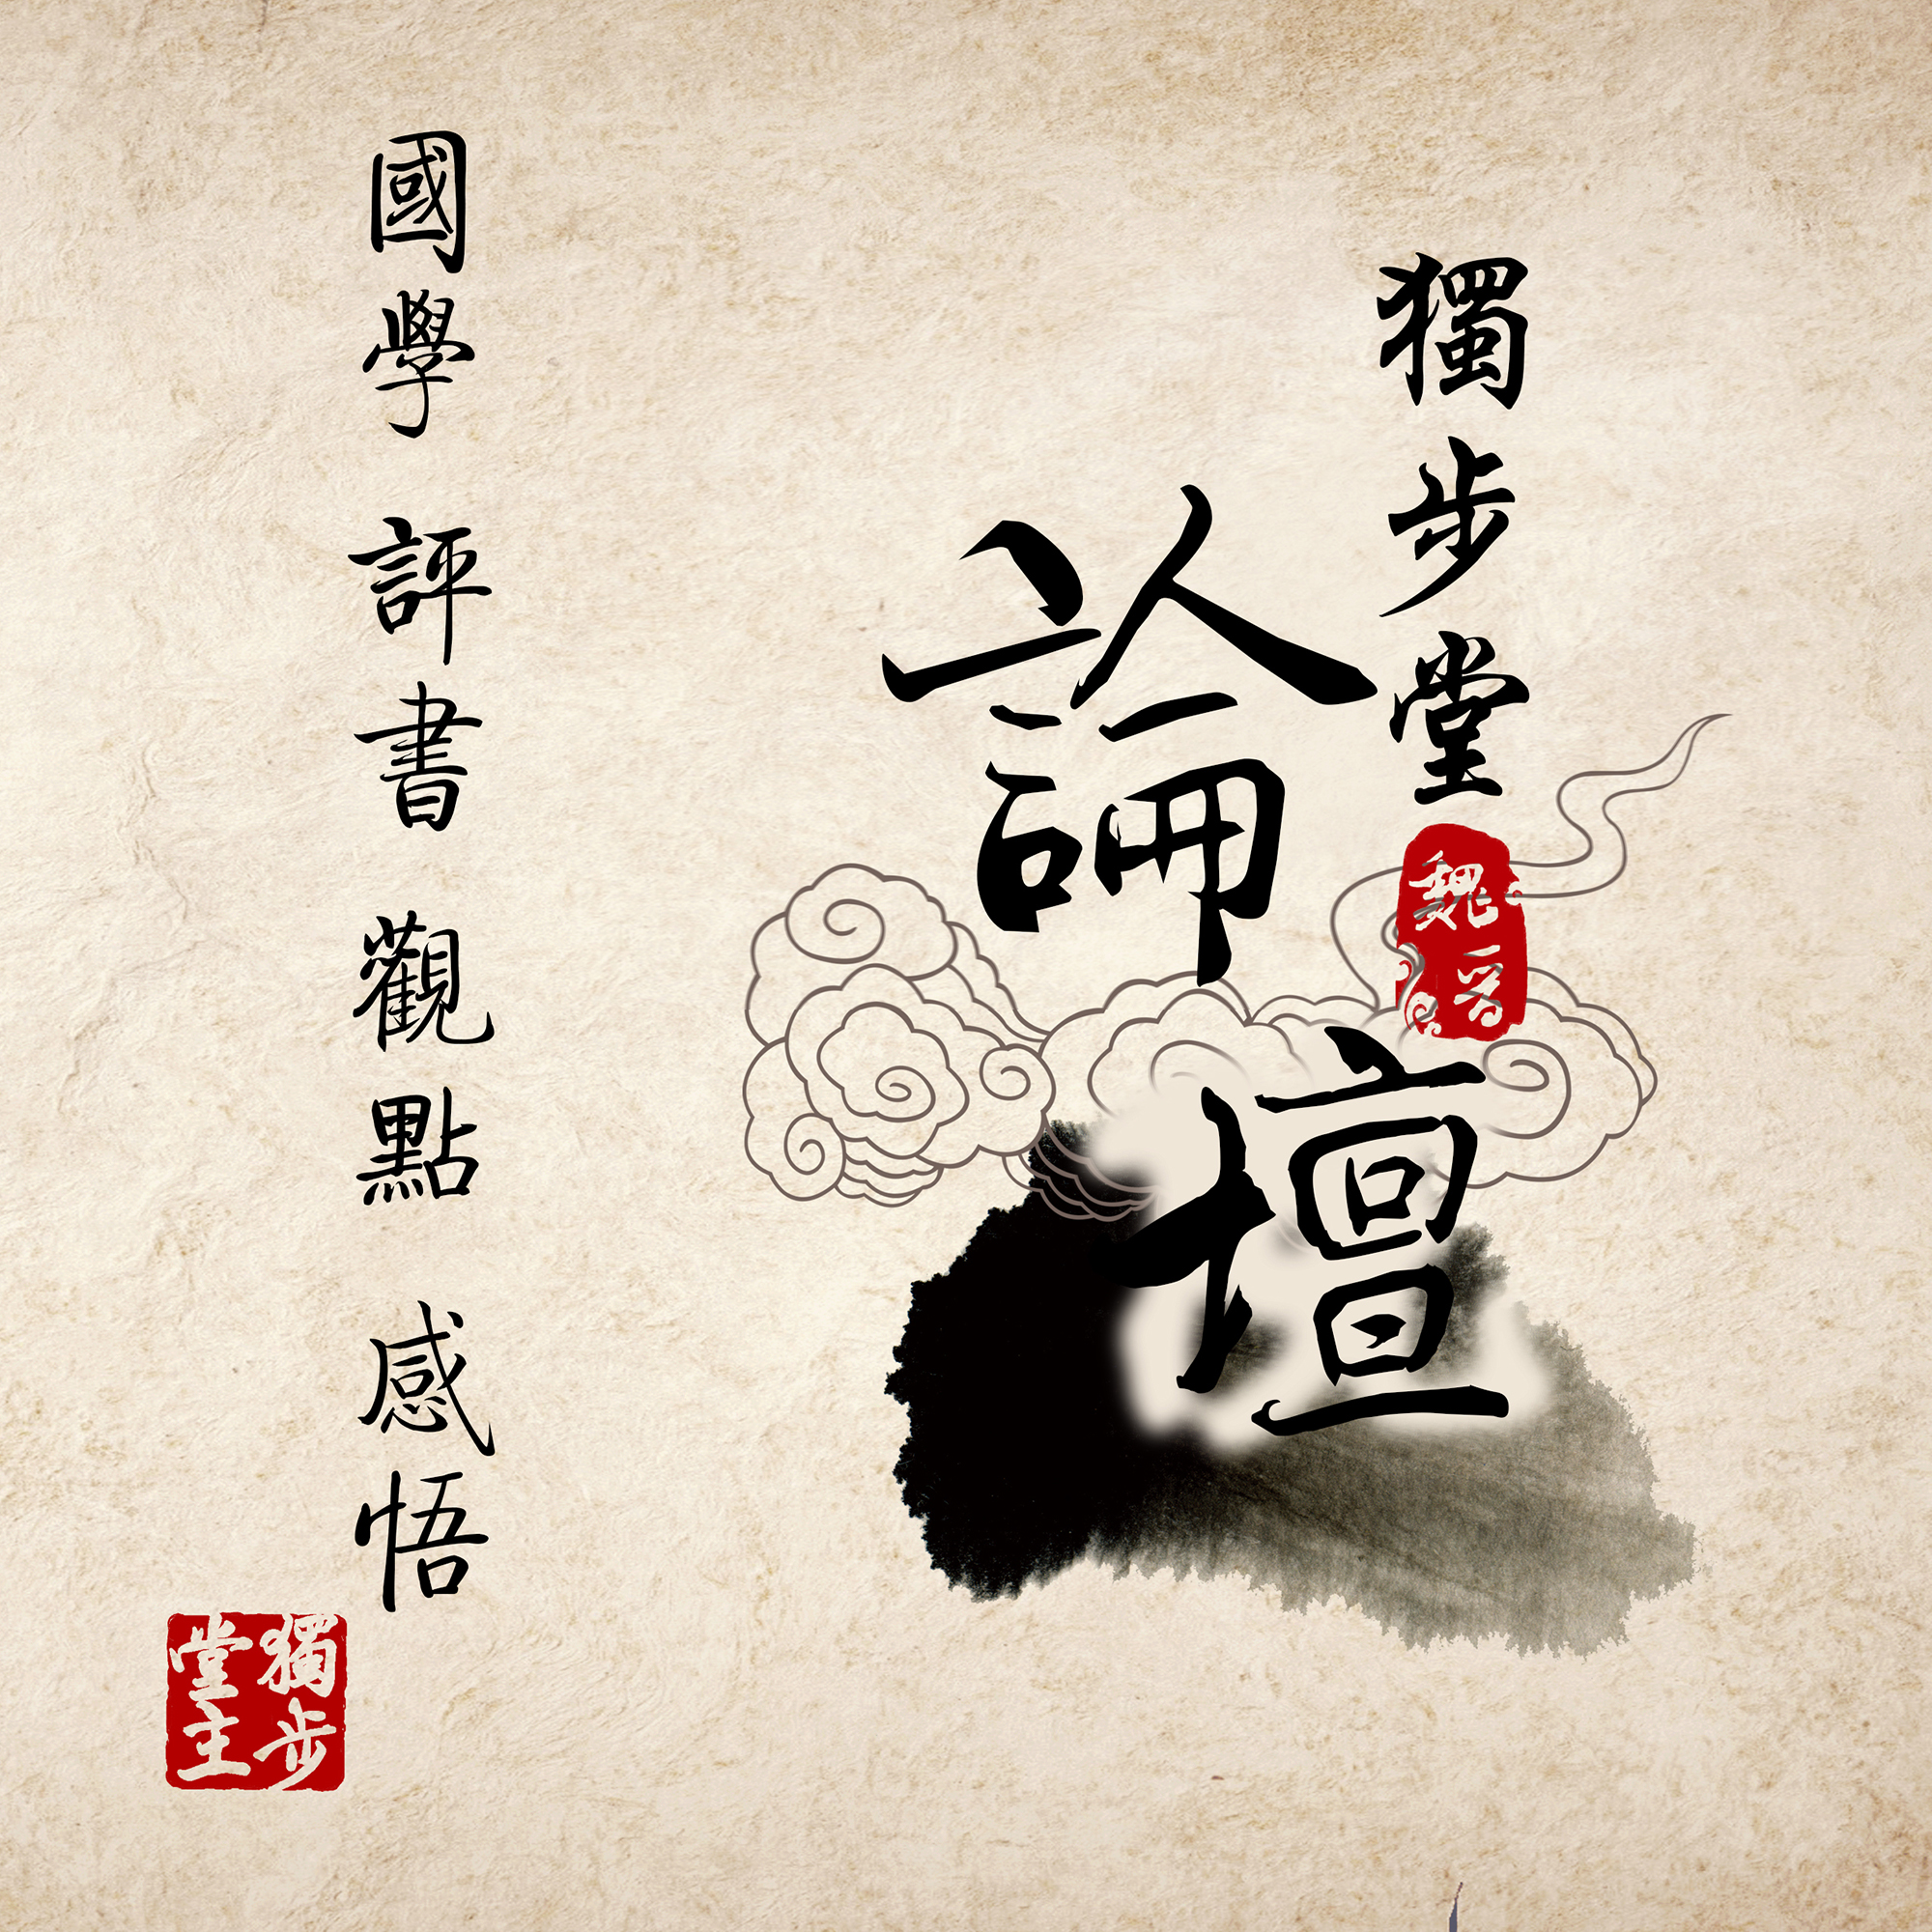 獨步堂
論壇
國學 評書 觀點 感悟
獨步
堂主